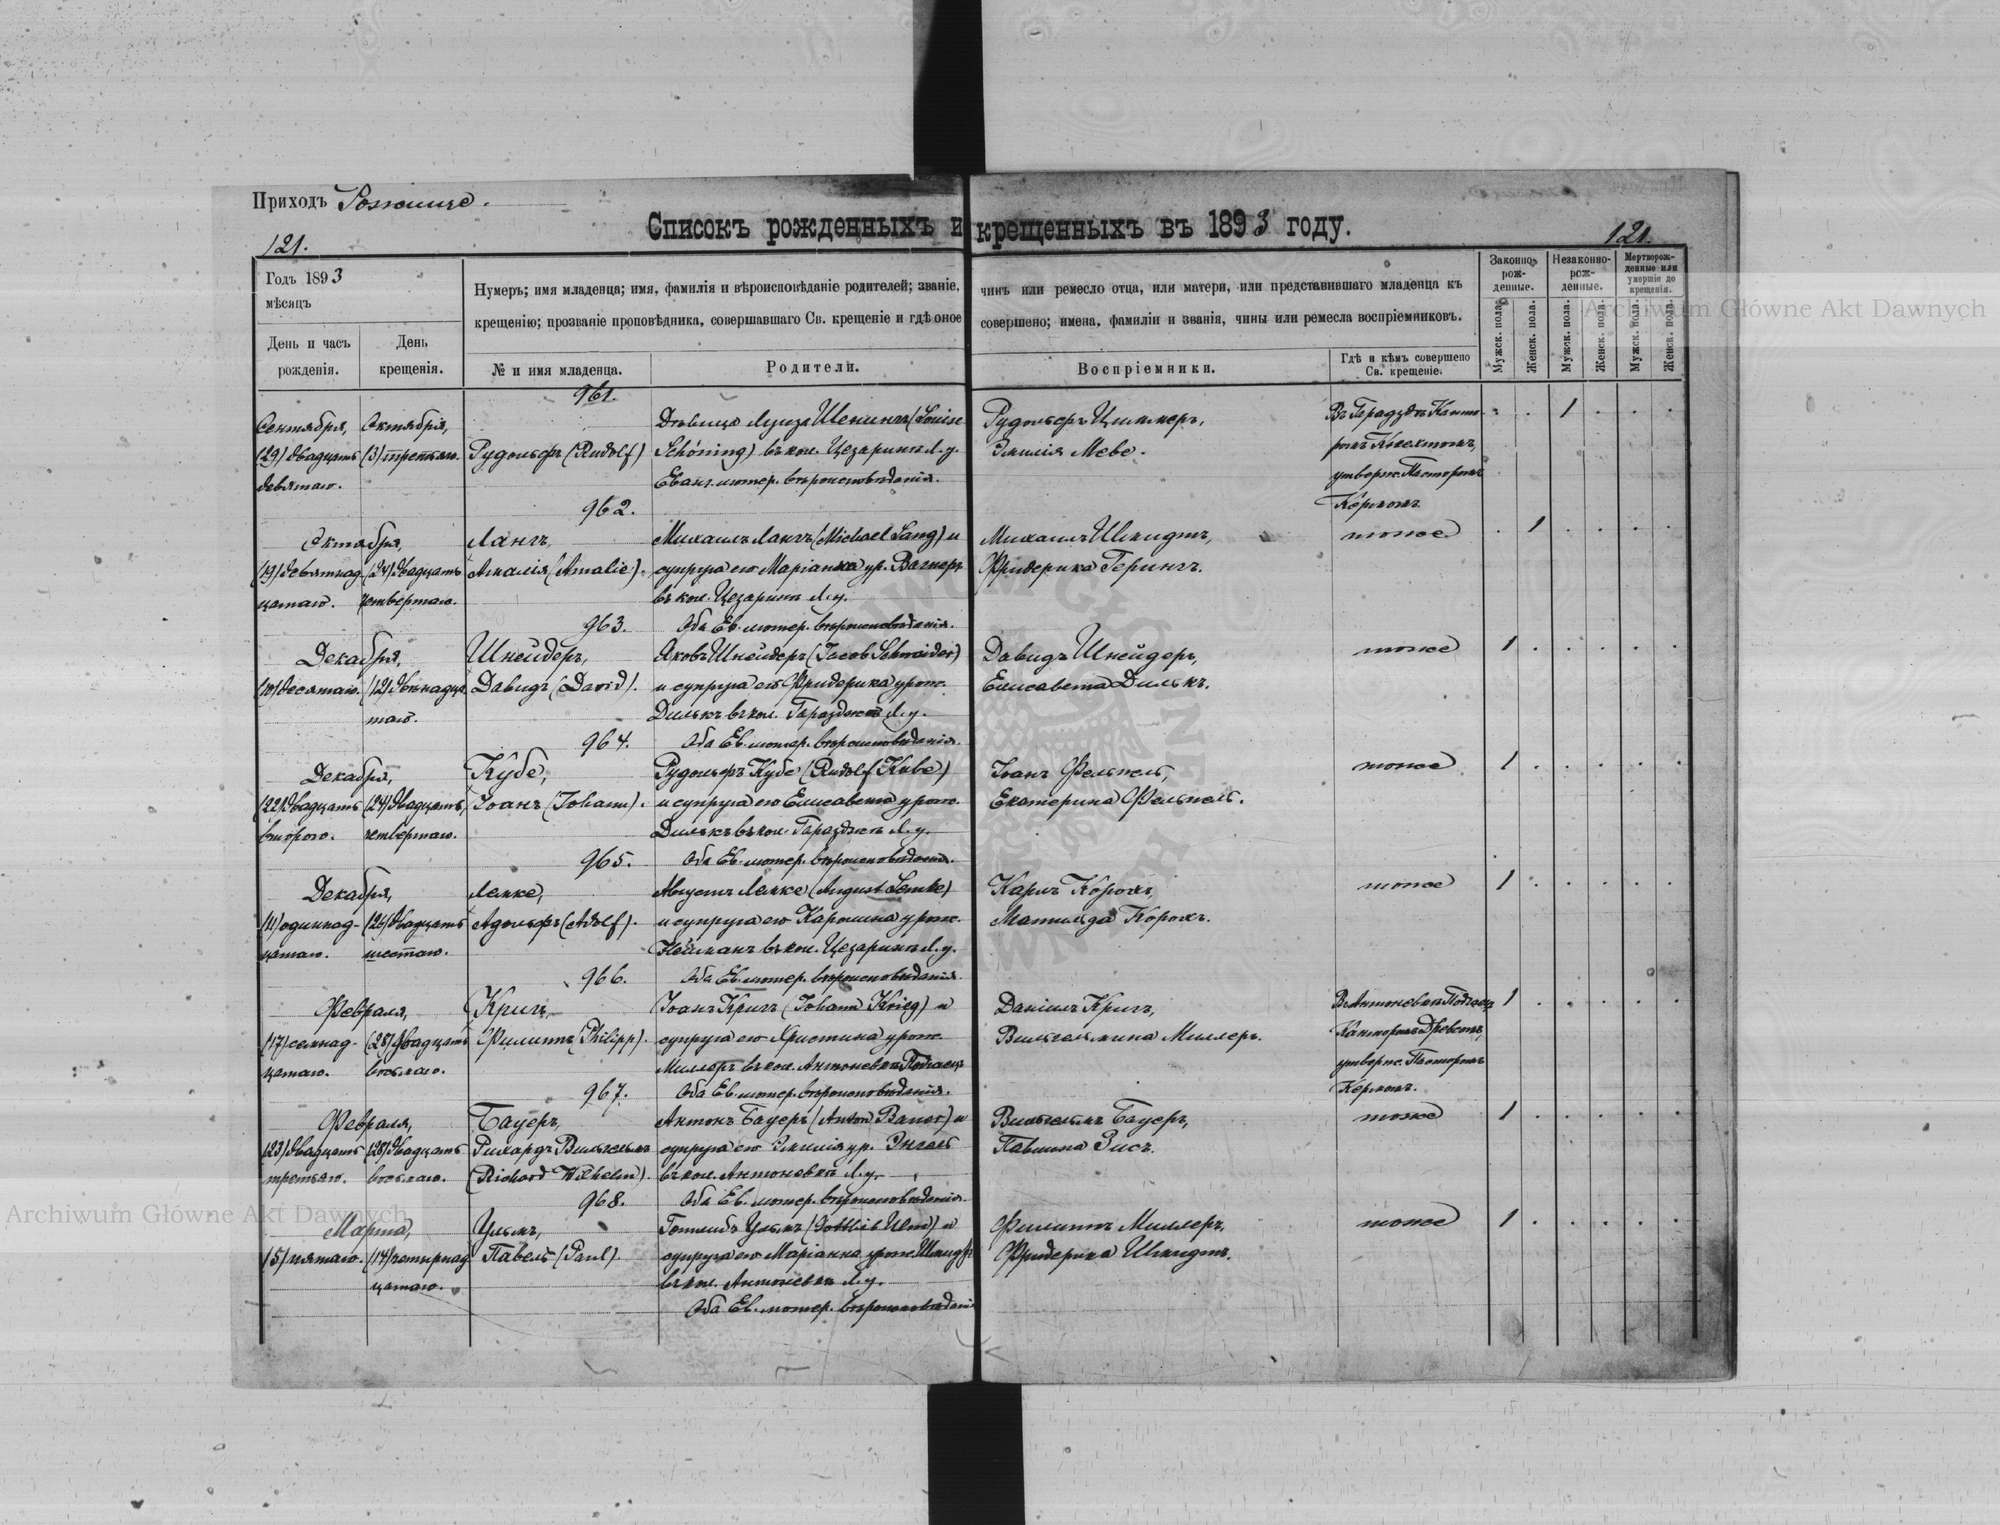 Приходъ Рожище.
Списокъ рожденныхъ и крещенныхъ въ 1893 году.
121.
121.
Годъ 1893
мѣсяцъ
День и часъ рожденія.
День крещенія.
Нумеръ; имя младенца; имя, фамилія и вѣроисповѣданіе родителей; званіе, чинъ или ремесло отца, или матери, или представившаго младенца къ
крещенію; прозваніе проповѣдника, совершавшаго Св. крещеніе и гдѣ оное совершено; имена, фамиліи и званія, чины или ремесла воспріемниковъ.
№ и имя младенца.
Родители.
Воспріемники.
Гдѣ и кѣмъ совершено Св. крещеніе.
Законно-рож-денные.
Незаконно-рож-денные.
Мертворож-денные или умершіе до крещенія.
Мужск. пола.
Женск. пола.
Мужск. пола.
Женск. пола.
Мужск. пола.
Женск. пола.
961.
Сентября, Октября, Дѣвица Луиза Шенингъ (Louise Рудольфъ Циммеръ, Въ Гараздѣ Канто- 1
(29) двадцать (3) третьяго. Рудольфъ (Rudolf) Schöning) въ кол. Цезаринъ Л. у. Эмилія Меве.
девятаго. Еванг. лютер. вѣроисповѣданія. утвержд. Пасторомъ
962. Керномъ.
Октября, Лангъ, Михаилъ Лангъ (Michael Lang) и Михаилъ Шмидтъ, тоже 1
(19) девятнад- (24) двадцать Амалія (Amalie). супруга его Маріанна ур. Вагнеръ Фридерика Герингъ.
цатаго. четвертаго. въ кол. Цезаринъ Л. у.
963. Оба Ев. лютер. вѣроисповѣданія.
Декабря, Шнейдеръ, Яковъ Шнейдеръ (Jacob Schneider) Давидъ Шнейдеръ, тоже 1
(10) десятаго. (12) двѣнадца- Давидъ (David). и супруга его Фридерика урож. Елисавета Дилькъ.
таго. Дилькъ въ кол. Гаразджа Л. у.
964. Оба Ев. лютер. вѣроисповѣданія.
Декабря, Кубе, Рудольфъ Кубе (Rudolf Kube) Іоанъ Фельпель, тоже 1
(22) двадцать (24) двадцать Іоанъ (Johann). и супруга его Елисавета урож. Екатерина Фельпель.
второго. четвертаго. Дилькъ въ кол. Гаразджа Л. у.
965. Оба Ев. лютер. вѣроисповѣданія.
Декабря, Лемке, Августъ Лемке (August Lemke) Карлъ Кöрокъ, тоже 1
(11) одиннад- (26) двадцать Адольфъ (Adolf). и супруга его Каролина урож. Матильда Кöрокъ.
цатаго. шестаго. Нейманъ въ кол. Цезаринъ Л. у.
966. Оба Ев. лютер. вѣроисповѣданія.
Февраля, Кригъ, Іоанъ Кригъ (Johann Krieg) и Даніилъ Кригъ, Въ Антоневкѣ 1
(17) семнад- (28) двадцать Филиппъ (Philipp). супруга его Христина урож. Вильгельмина Миллеръ. Канторомъ Древсомъ,
цатаго. восьмаго. Миллеръ въ кол. Антоневка утвержд. Пасторомъ
967. Оба Ев. лютер. вѣроисповѣданія. Керномъ.
Февраля, Бауеръ, Антонъ Бауеръ (Anton Bauer) и Вильгельмъ Бауеръ, тоже 1
(23) двадцать (28) двадцать Рихардъ Вильгельмъ супруга его Эмилія ур. Энгель Павлина Зисъ.
третьяго. восьмаго. (Richard Wilhelm). въ кол. Антоневкѣ Л. у.
968. Оба Ев. лютер. вѣроисповѣданія.
Марта, Ульмъ, Готлибъ Ульмъ (Gottlieb Ulm) и Филиппъ Миллеръ, тоже 1
(5) пятаго. (14) четырнад- Павелъ (Paul). супруга его Маріанна урож. Шмидтъ Фридерика Шмидтъ.
цатаго. въ кол. Антоневкѣ Л. у.
Оба Ев. лютер. вѣроисповѣданія
Archiwum Główne Akt Dawnych
Archiwum Główne Akt Dawnych